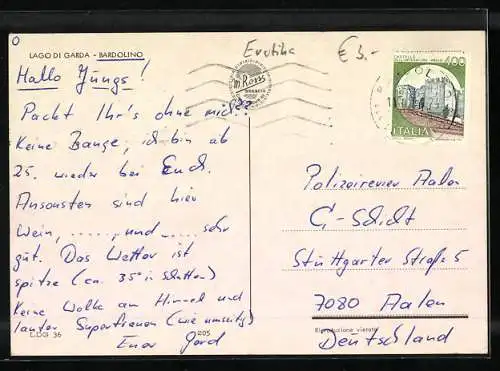 LAGO DI GARDA - BARDOLINO
Erotika
€ 3.-
Hallo Jungs!
Packt Ihr's ohne mich??
Keine Bange, ich bin ab
25. wieder bei Euch.
Ansonsten sind hier
Wein, ......, und ...... sehr
gut. Das Wetter ist
spitze (ca. 35° im Schatten)
Keine Wolke am Himmel und
lauter Superfrauen (wie umseitig)
Euer Gerd
L.DG 36
205
m. Rossi
BRESCIA
400
ITALIA
Polizeirevier Aalen
C-Schicht
Stuttgarter Straße 5
7080 Aalen
Riproduzione vietata
Deutschland